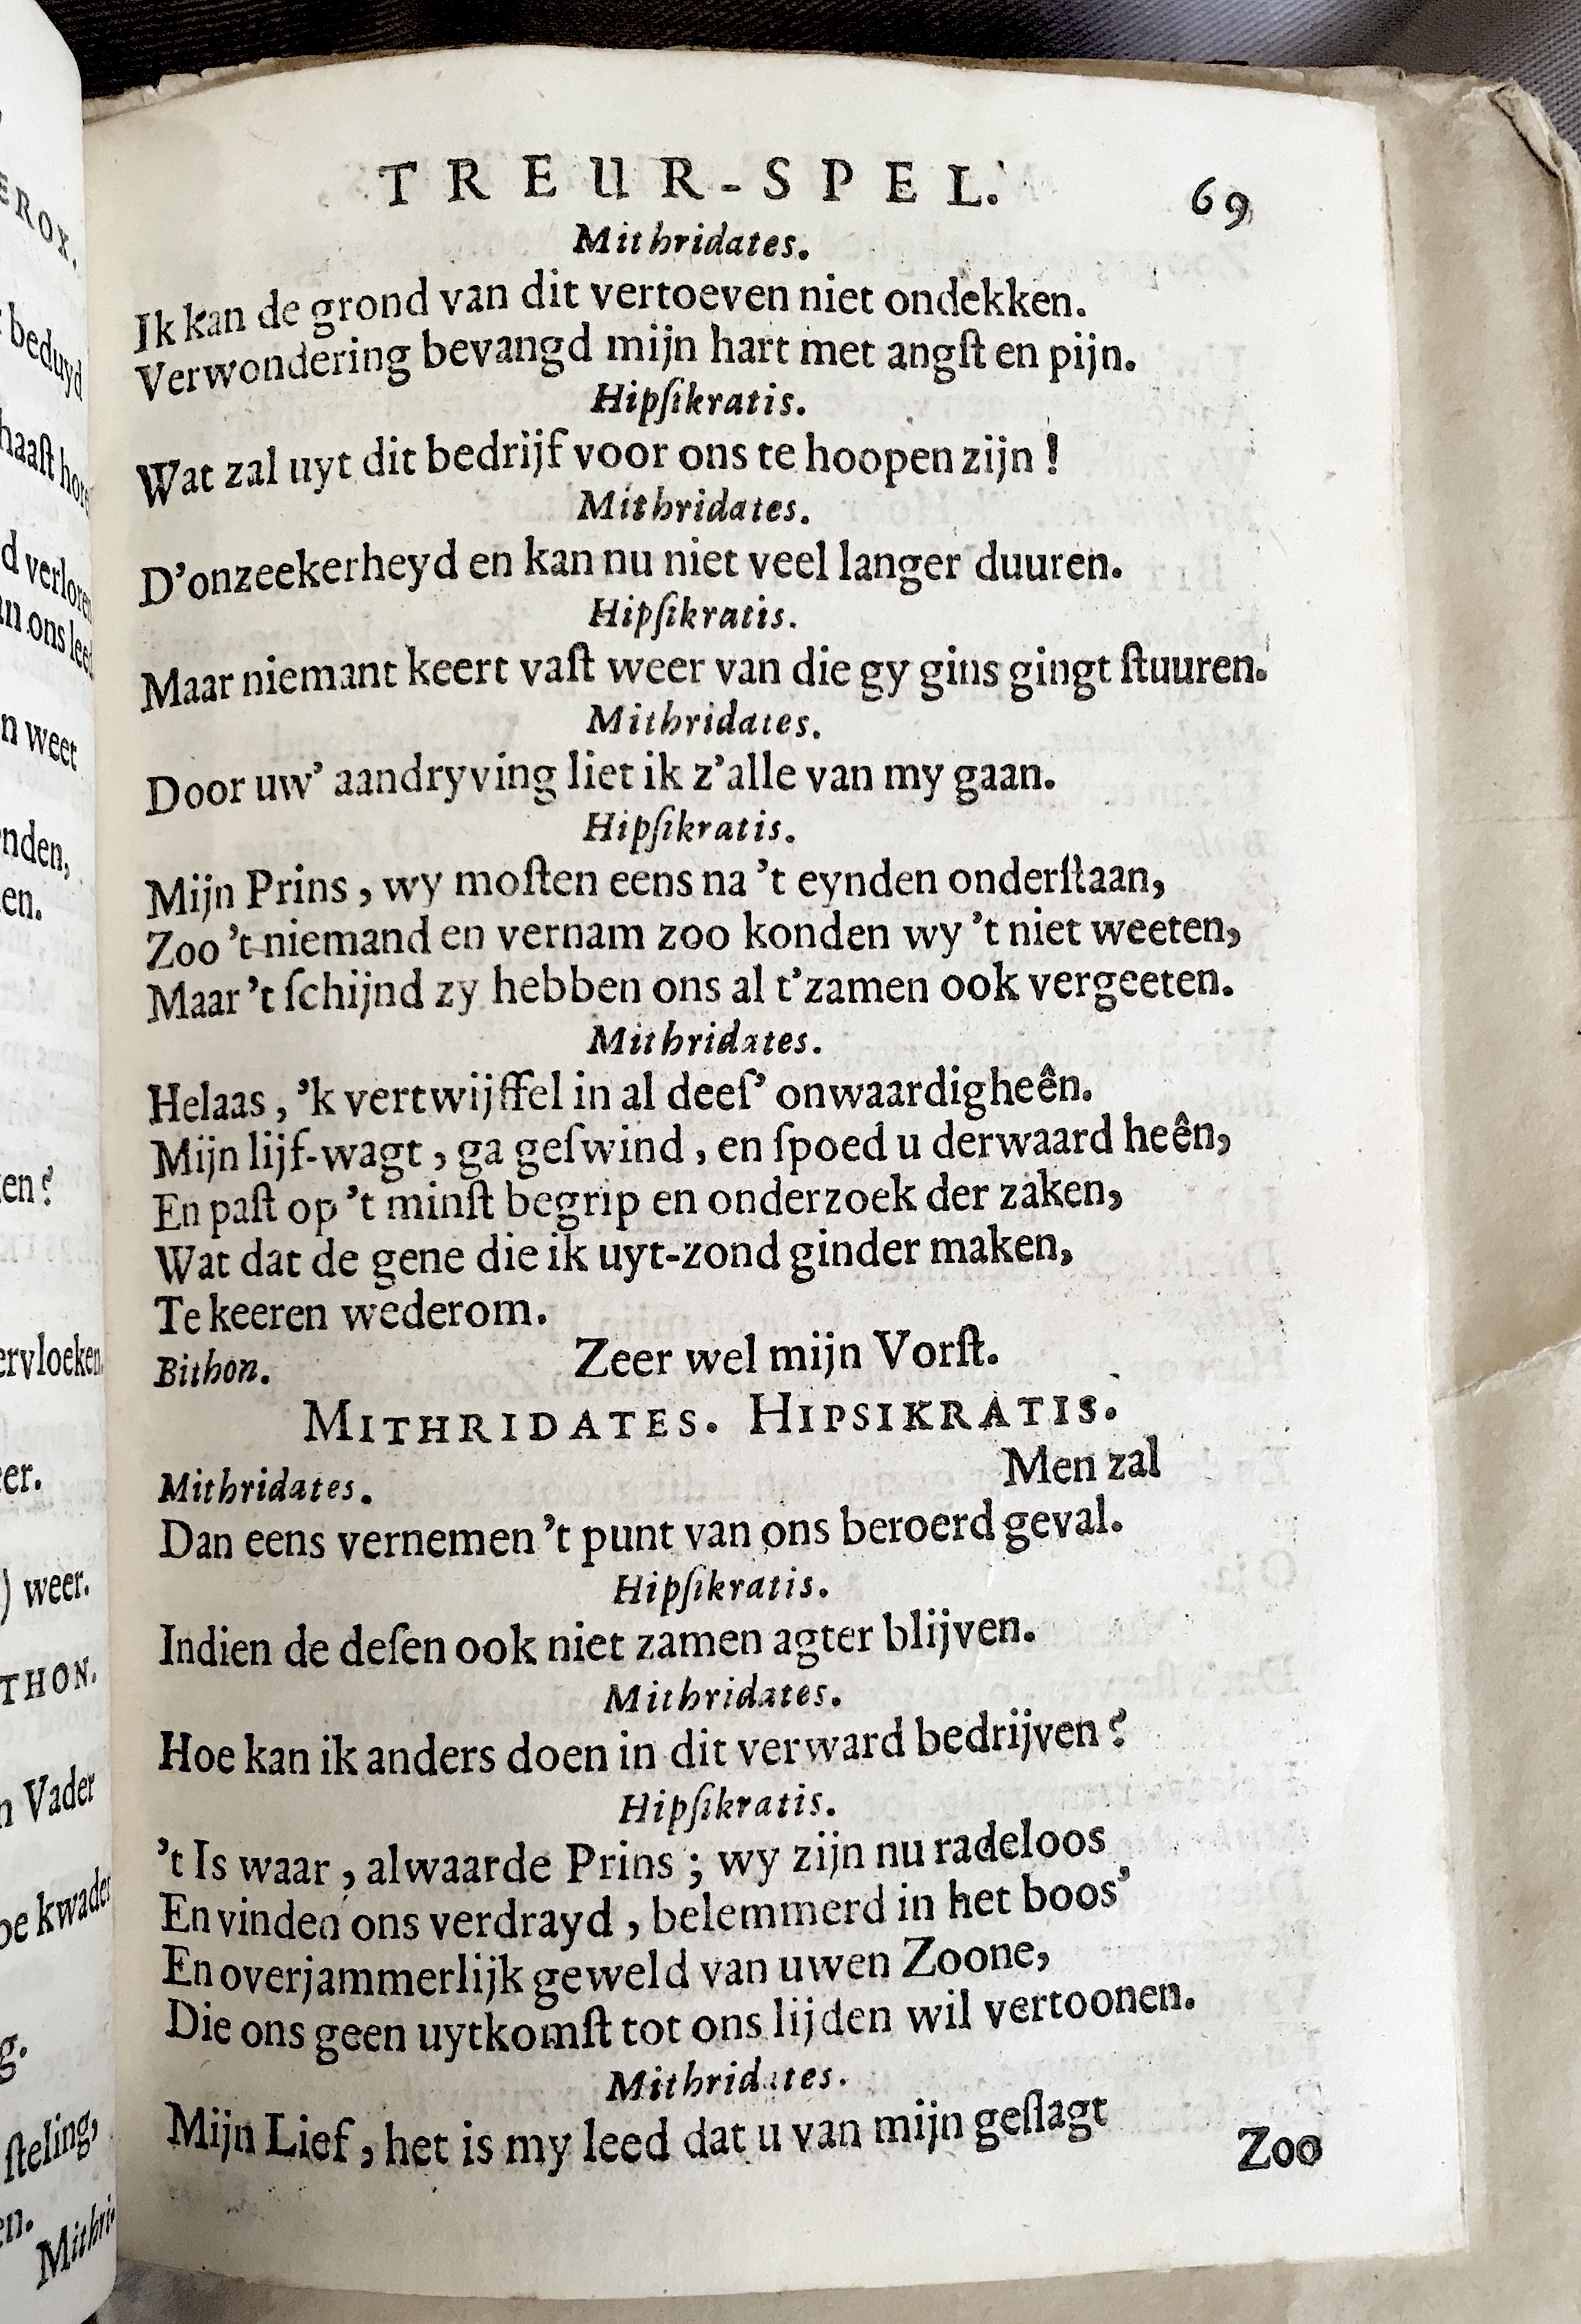 TREUR-SPEL. 69
Mithridates.
Ik kan de grond van dit vertoeven niet ondekken.
Verwondering bevangd mijn hart met angſt en pijn.
Hipſikratis.
Wat zal uyt dit bedrijf voor ons te hoopen zijn!
Mithridates.
D'onzeekerheyd en kan nu niet veel langer duuren.
Hipſikratis.
Maar niemant keert vaſt weer van die gy gins gingt ſtuuren.
Mithridates.
Door uw' aandryving liet ik z'alle van my gaan.
Hipſikratis.
Mijn Prins, wy moſten eens na 't eynden onderſtaan,
Zoo 't niemand en vernam zoo konden wy 't niet weeten,
Maar 't ſchijnd zy hebben ons al t'zamen ook vergeeten.
Mithridates.
Helaas, 'k vertwijffel in al deeſ' onwaardigheên.
Mijn lijf-wagt, ga geſwind, en ſpoed u derwaard heên,
En paſt op 't minſt begrip en onderzoek der zaken,
Wat dat de gene die ik uyt-zond ginder maken,
Te keeren wederom.
Bithon. Zeer wel mijn Vorſt.
MITHRIDATES. HIPSIKRATIS.
Mithridates. Men zal
Dan eens vernemen 't punt van ons beroerd geval.
Hipſikratis.
Indien de deſen ook niet zamen agter blijven.
Mithridates.
Hoe kan ik anders doen in dit verward bedrijven?
Hipſikratis.
't Is waar, alwaarde Prins; wy zijn nu radeloos
En vinden ons verdrayd, belemmerd in het boos'
En overjammerlijk geweld van uwen Zoone,
Die ons geen uytkomſt tot ons lijden wil vertoonen.
Mithridates.
Mijn Lief, het is my leed dat u van mijn geſlagt
Zoo